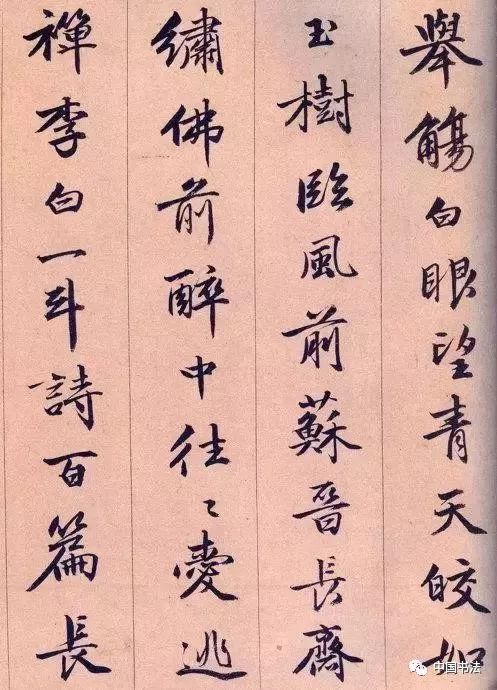 舉觴白眼望青天皎如
玉樹臨風前蘇晉長齋
繡佛前醉中往〻愛逃
禪李白一斗詩百篇長
中国书法